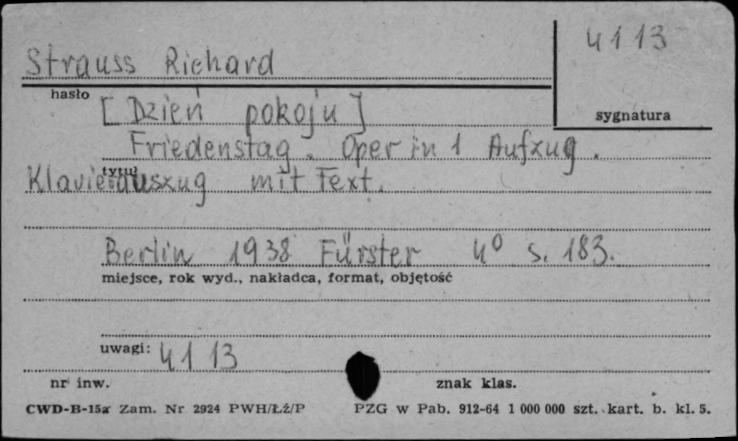 4113
Strauss Richard
hasło
sygnatura
[Dzień pokoju]
Friedenstag. Oper in 1 Aufzug.
tytuł
Klavierauszug mit Text.
Berlin 1938 Fürster 4⁰ s. 183.
miejsce, rok wyd., nakładca, format, objętość
uwagi: 4113
nr inw. znak klas.
CWD-B-15a Zam. Nr 2924 PWH/Łź/P PZG w Pab. 912-64 1 000 000 szt. kart. b. kl. 5.